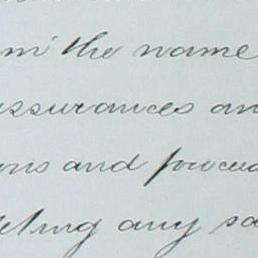 the name
assurances an
ons and proceed
any sa